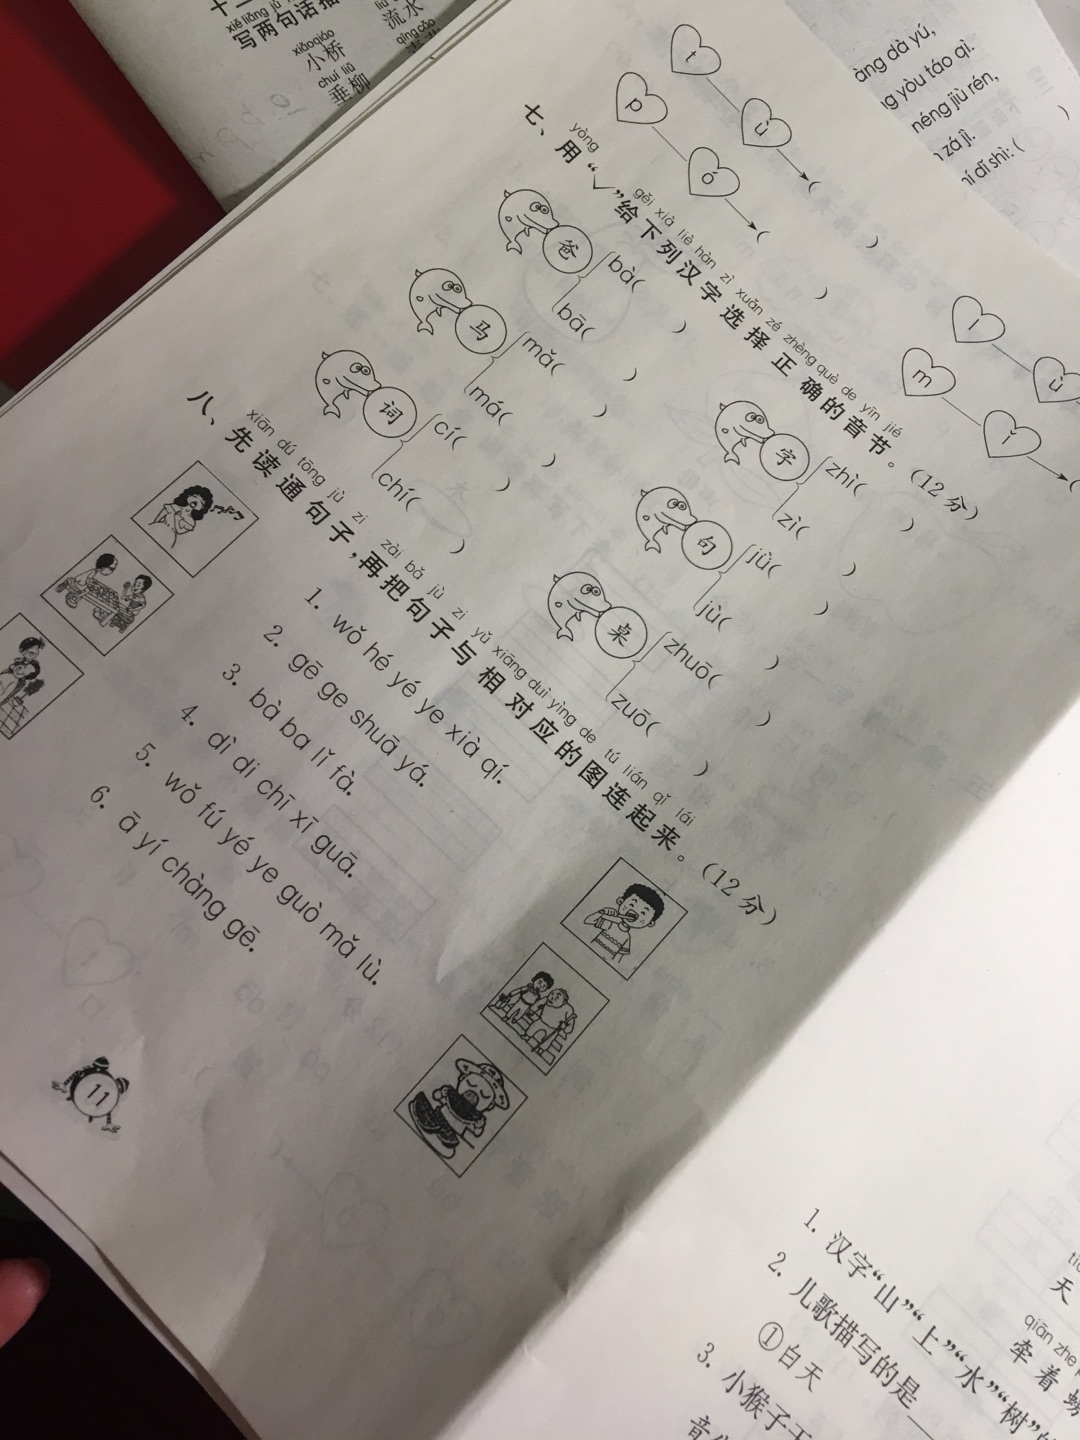 xiě liǎng jù
写两句话描
xiǎoqiáo
小桥
chuí liǔ
垂柳
流水
qīng cǎo
àng dà yú,
g yòu táo qì.
néng jiù rén,
zá jì.
dǐ shì: (
t ù (
)
p ó (
)
l ù
m ǐ (
yòng gěi xià liè hàn zì xuǎn zé zhèng què de yīn jié
七、用“✓”给下列汉字选择正确的音节。(12分)
爸 bà( )
bā( )
字 zhì( )
zì( )
马 mǎ( )
má( )
句 jǜ( )
jù( )
词 cí( )
chí( )
桌 zhuō( )
zuō( )
xiān dú tōng jù zi zài bǎ jù zi yǔ xiāng duì yìng de tú lián qǐ lái
八、先读通句子,再把句子与相对应的图连起来。(12分)
1. wǒ hé yé ye xià qí.
2. gē ge shuā yá.
3. bà ba lǐ fà.
4. dì di chī xī guā.
5. wǒ fú yé ye guò mǎ lù.
6. ā yí chàng gē.
11
1. 汉字“山”“上”“水”“树”
2. 儿歌描写的是
①白天
3. 小猴子
天
qiān zhe
牵着